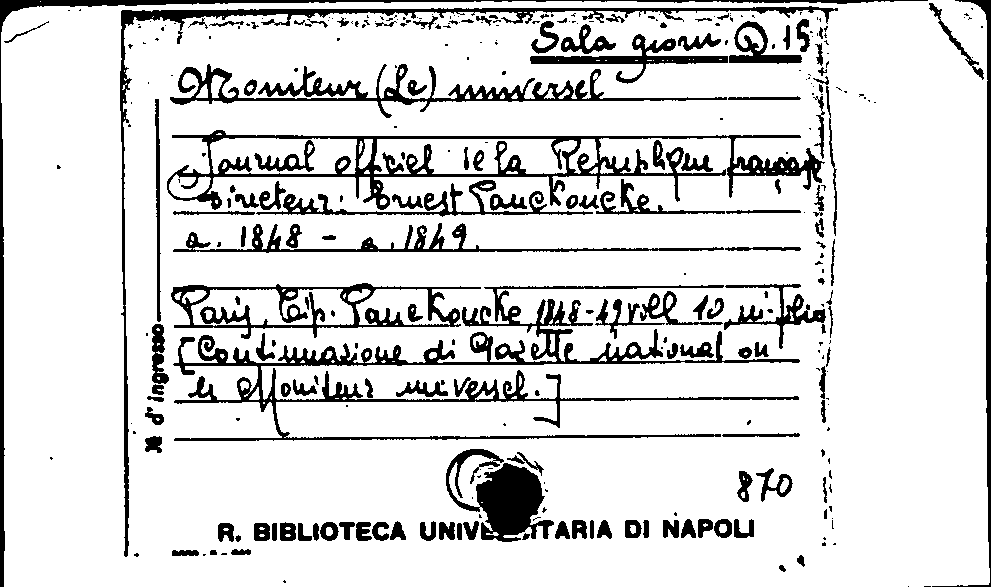 Sala giorn. Q. 15
Moniteur (Le) universel
Journal officiel de la Republique française
Directeur: Ernest Panckoucke.
a. 1848 - a. 1849.
Paris, Tip. Panckoucke, 1848-49 voll. 10, in-folio
[Continuazione di Gazette national ou
le Moniteur universel.]
№ d'ingresso
870
R. BIBLIOTECA UNIVERSITARIA DI NAPOLI